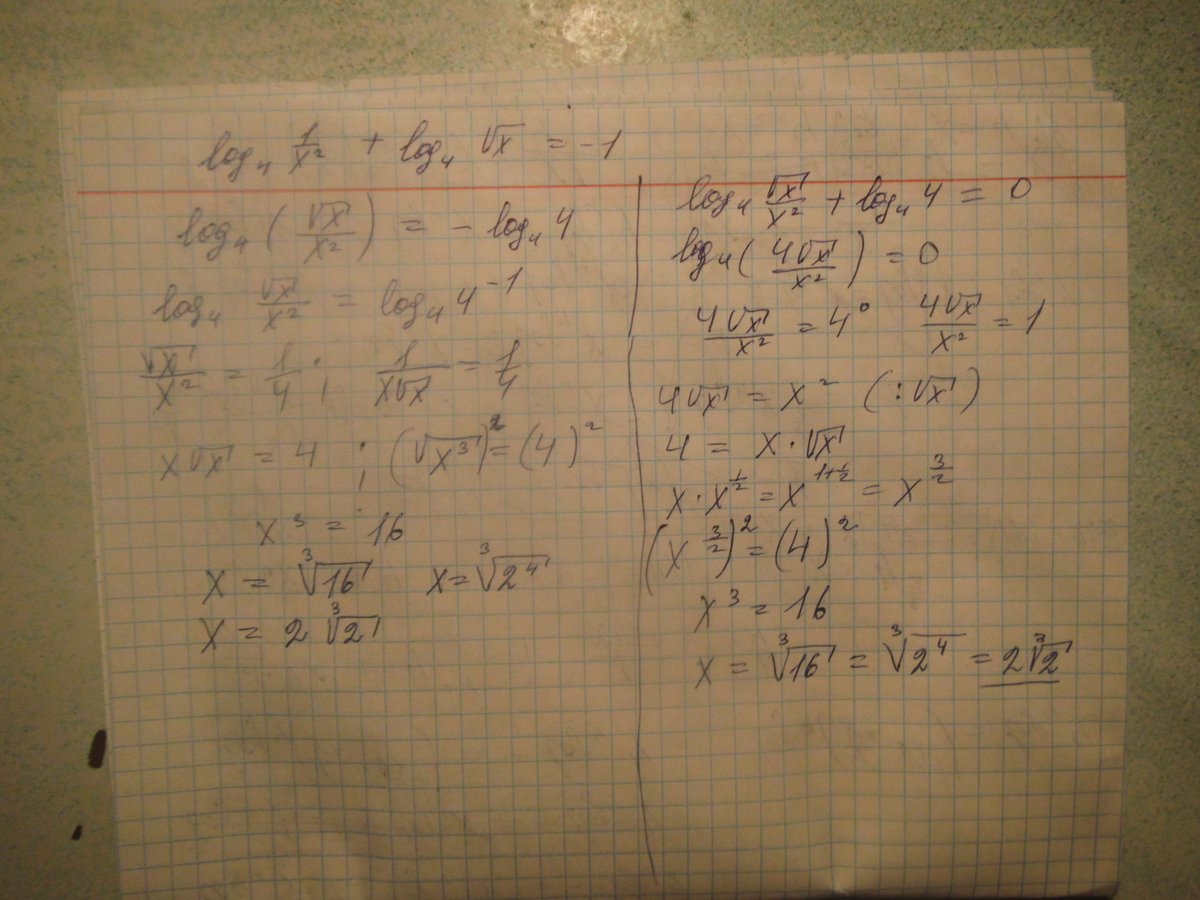 log₄ 1/x² + log₄ √x = -1
log₄ (√x/x²) = - log₄ 4
log₄ √x/x² = log₄ 4⁻¹
√x/x² = 1/4 ; 1/x√x = 1/4
x√x = 4 ; (√x³)² = (4)²
x³ = 16
x = ∛16 x = ∛2⁴
x = 2 ∛2
log₄ √x/x² + log₄ 4 = 0
log₄ (4√x/x²) = 0
4√x/x² = 4⁰ 4√x/x² = 1
4√x = x² (:√x)
4 = x · √x
x · x^(1/2) = x^(1+1/2) = x^(3/2)
(x^(3/2))² = (4)²
x³ = 16
x = ∛16 = ∛2⁴ = 2∛2